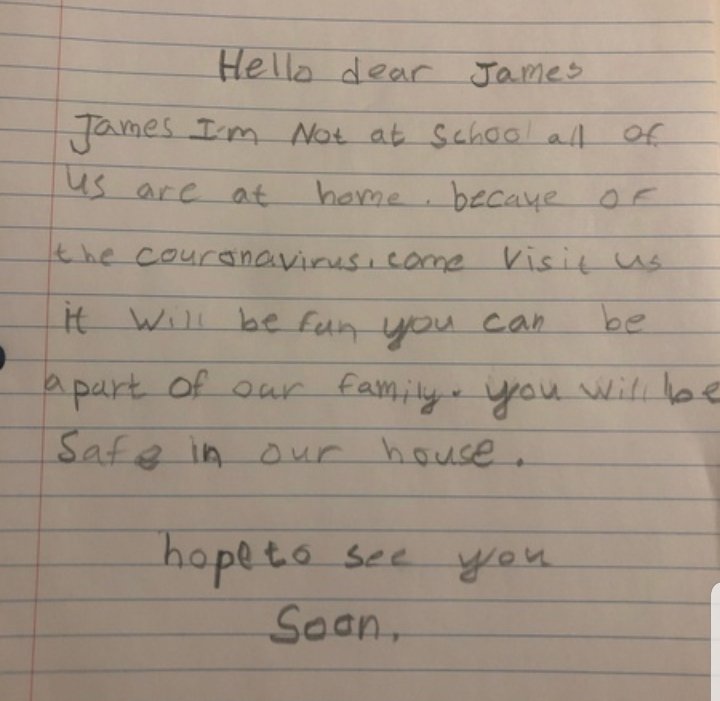 Hello dear James
James I'm Not at School all of
us are at home. becaye of
the couronavirus. come visit us
it will be fun you can be
apart of our family. you will be
safe in our house.
hope to see you
Soon.